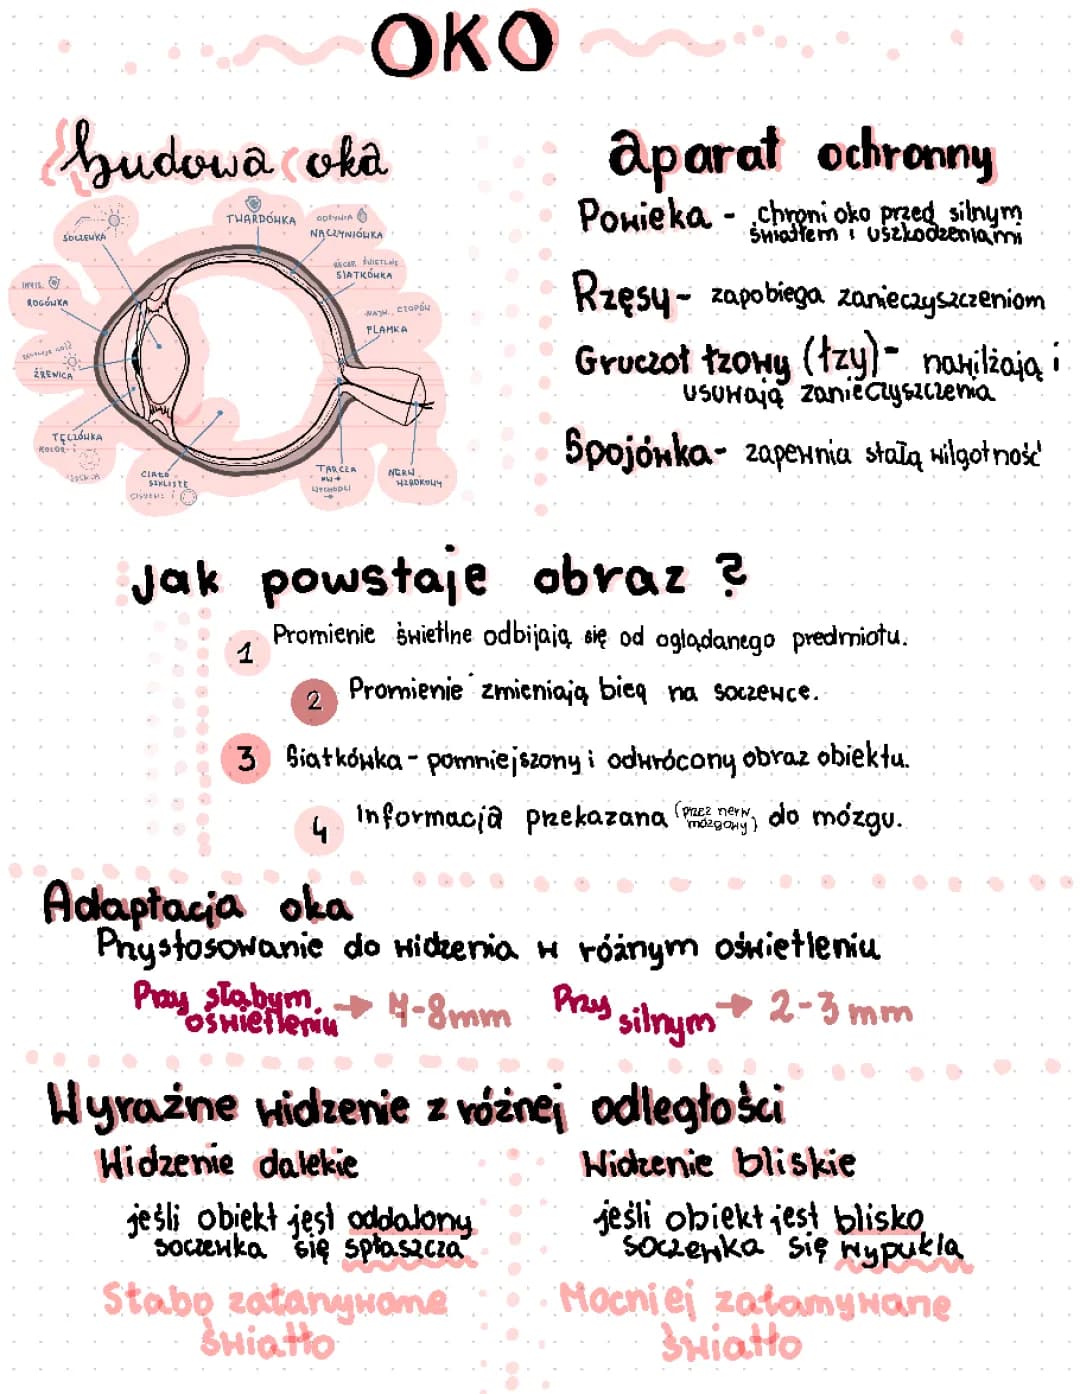 OKO
budowa oka
SOCZEWKA
TWARDÓWKA
ODŻYWIA
NACZYNIÓWKA
SIATKÓWKA
ROGÓWKA
CZOPÓW
PLAMKA
ŹRENICA
TĘCZÓWKA
KOLOR
CIAŁO
SZKLISTE
TARCZA
NW
WYCHODZI
NERW
WZROKOWY
aparat ochronny
Powieka - chroni oko przed silnym
światłem i uszkodzeniami
Rzęsy - zapobiega zanieczyszczeniom
Gruczoł łzowy (łzy) - nawilżają i
usuwają zanieczyszczenia
Spojówka - zapewnia stałą wilgotność
Jak powstaje obraz ?
1 Promienie świetlne odbijają się od oglądanego predmiotu.
2 Promienie zmieniają bieg na soczewce.
3 Siatkówka - pomniejszony i odwrócony obraz obiektu.
4 Informacja przekazana (przez nerw mózgowy) do mózgu.
Adaptacja oka
Przystosowanie do widzenia w różnym oświetleniu
Przy słabym
oświetleniu → 4-8mm
Przy
silnym → 2-3 mm
Wyraźne widzenie z różnej odległości
Widzenie dalekie
jeśli obiekt jest oddalony
soczewka się spłaszcza
Słabo załamywane
światło
Widzenie bliskie
jeśli obiekt jest blisko
soczewka się wypukla
Mocniej załamywane
światło